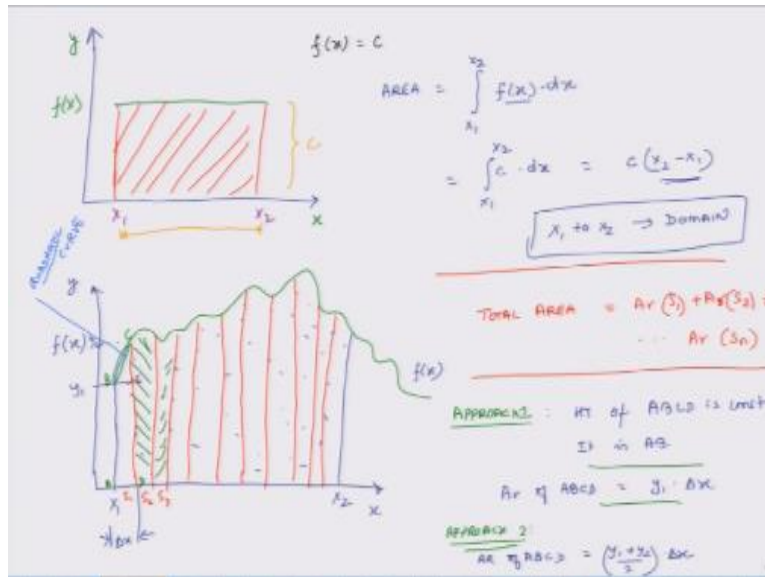 y
f(x) = c
f(x)
C
x₁
x₂
x
AREA = ∫ f(x)·dx
x₂
x₁
= ∫ c·dx = c(x₂-x₁)
x₂
x₁
x₁ to x₂ → DOMAIN
QUADRATIC
CURVE
y
f(x)
y₁
f(x)
x₁ S₁ S₂ S₃
x₂
x
Δx
TOTAL AREA = Ar(S₁) + Ar(S₂) +
... Ar(Sn)
APPROACH 1 : HT of ABCD is const
It is AB
Ar of ABCD = y₁·Δx
APPROACH 2:
AR of ABCD = (y₁+y₂/2) Δx